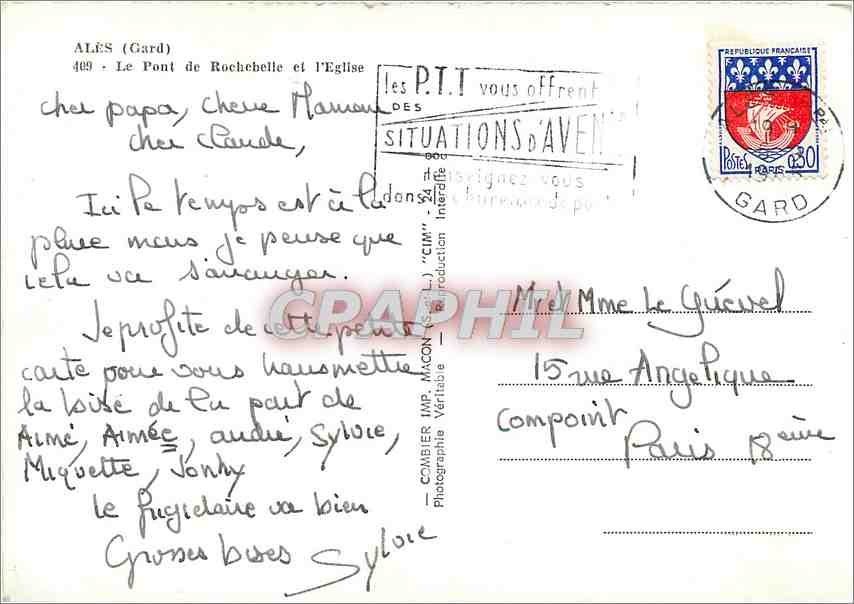 ALÈS (Gard)
409 - Le Pont de Rochebelle et l'Eglise
cher papa, chere Maman
cher Claude,
Ici le temps est à la
pluie mais je pense que
cela va s'arranger.
Je profite de cette petite
carte pour vous transmettre
la bise de la part de
Aimé, Aimée, andré, Sylvie,
Miquette, Jonhy
le frigidaire va bien
Grosses bises Sylvie
— COMBIER IMP. MACON (S.-et-L.) "CIM" - 24
Photographie Véritable — Reproduction Interdite
les P.T.T vous offrent
DES
SITUATIONS D'AVEN
renseignez vous
dans les bureaux de poste
REPUBLIQUE FRANÇAISE
POSTES 0,30
PARIS
GARD
Mr et Mme Le Guével
15 rue Angelique
Compoint
Paris 18eme
CPAPHIL